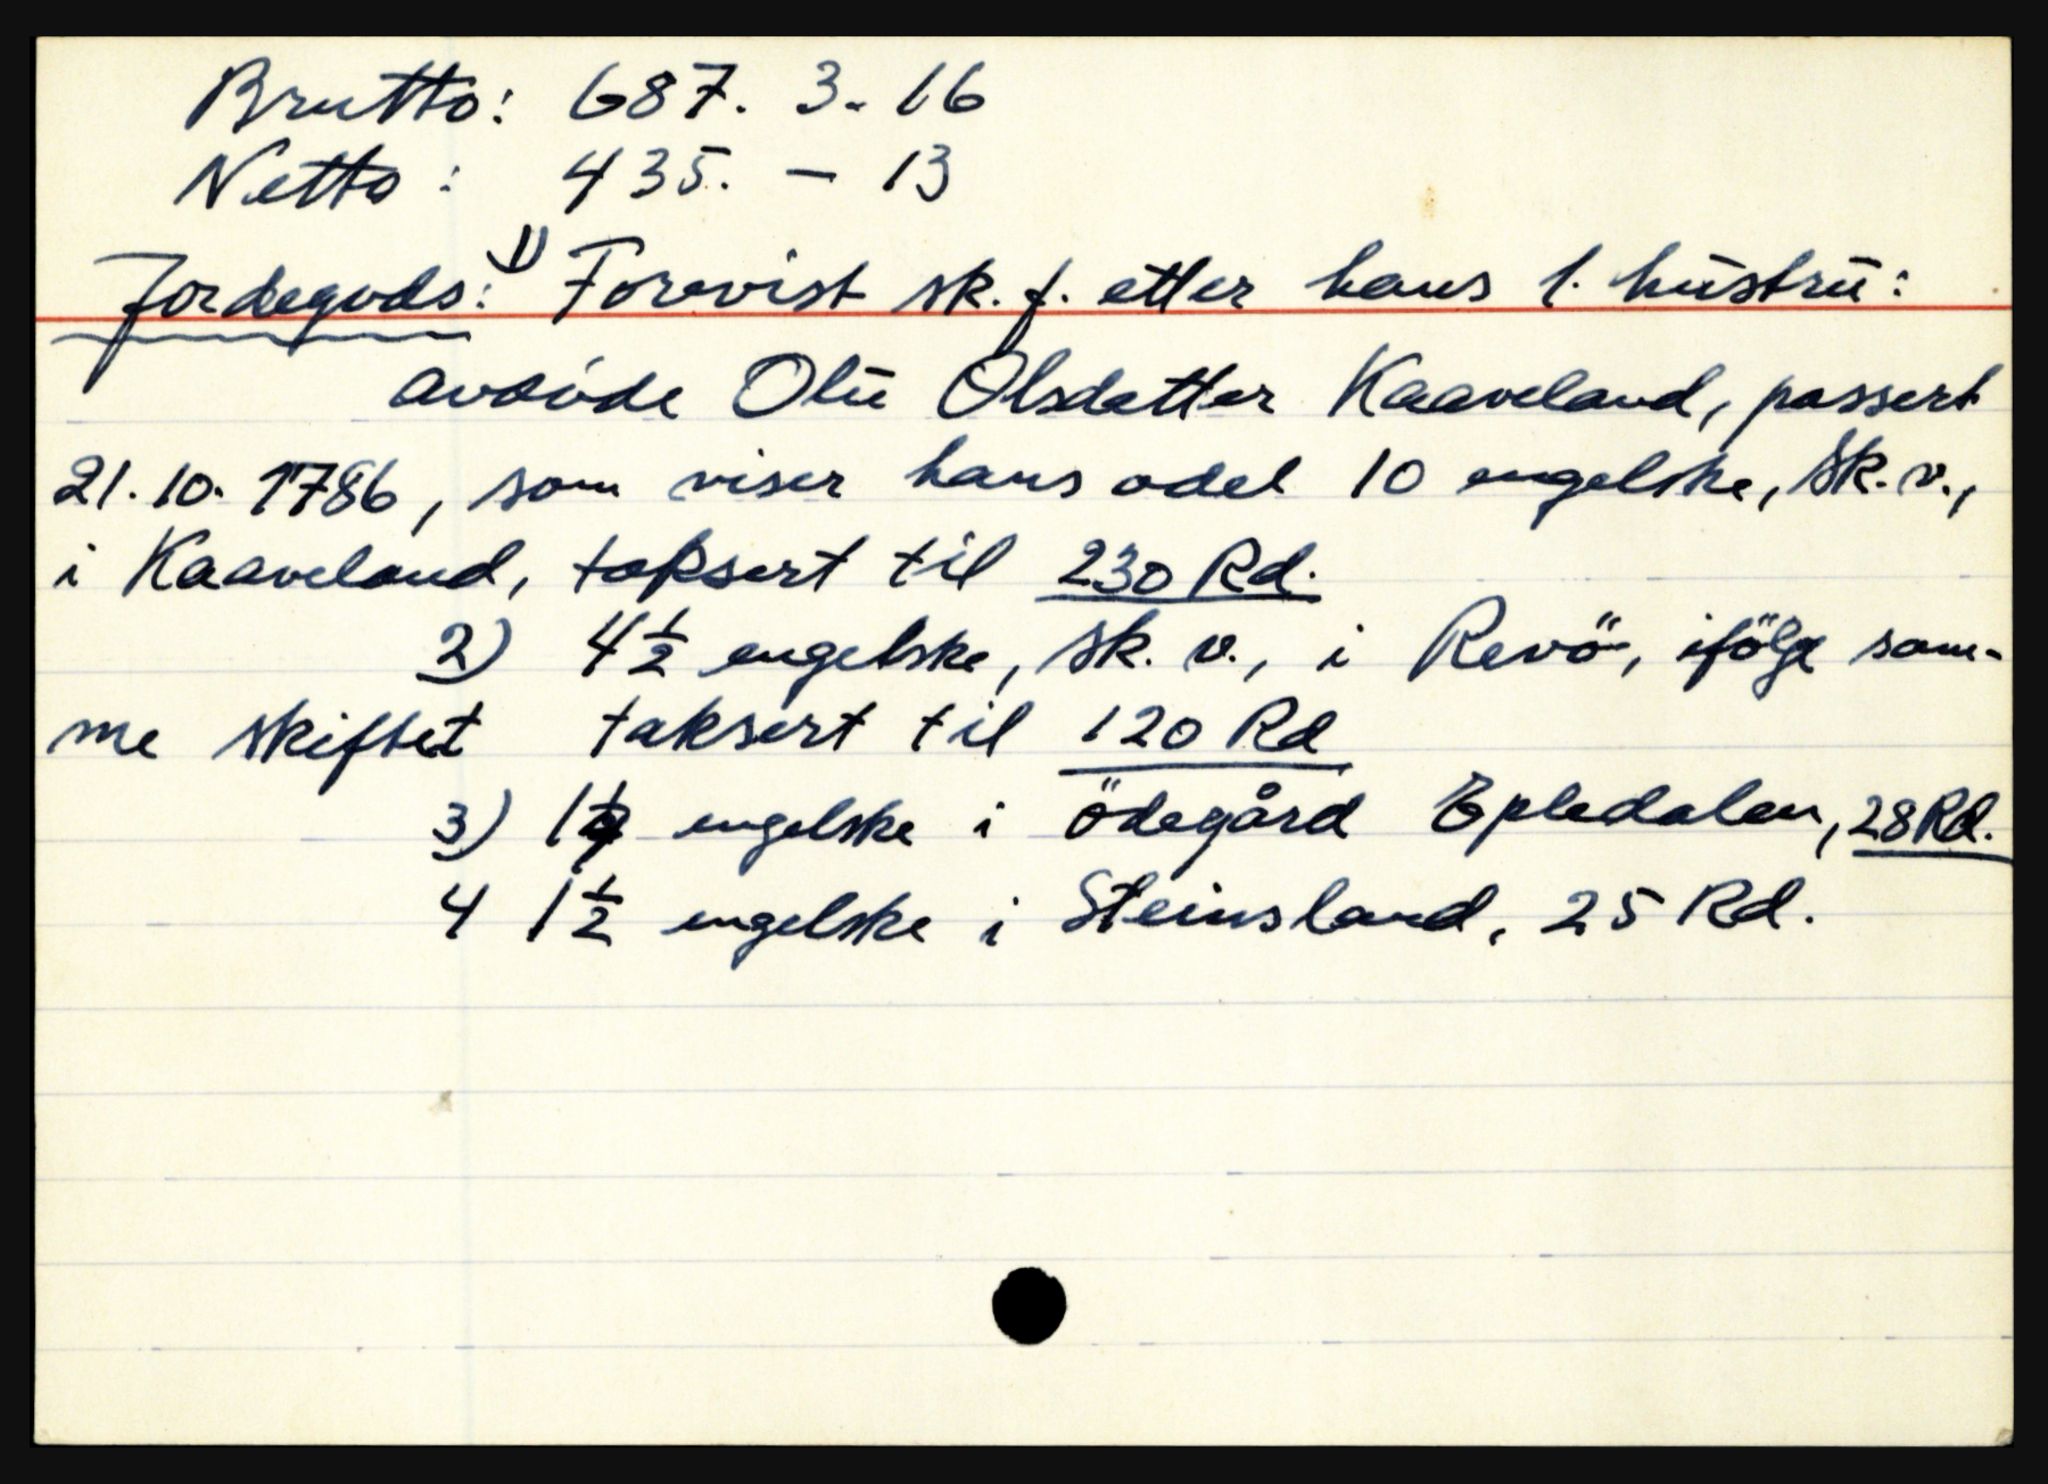 Brutto: 687. 3. 16
Netto: 435. - 13
Jordegods: 1) Forevist sk. f. etter hans 1. hustru:
avdøde Olu Olsdatter Kaaveland, passert
21.10. 1786, som viser hans odel 10 engelske, sk. v.,
i Kaaveland, taksert til 230 Rd.
2) 4 1/2 engelske, sk. v., i Revö, ifölge sam-
me skiftet taksert til 120 Rd
3) engelske i ödegård Epledalen, 28 Rd.
4 1 1/2 engelske i Steinsland, 25 Rd.